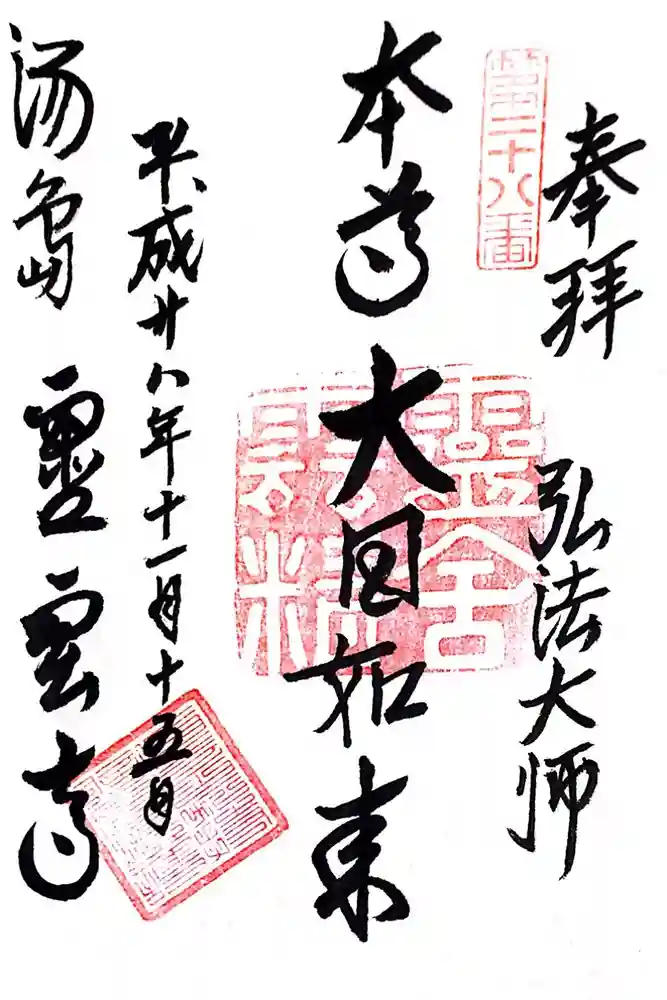 奉拝 弘法大师
第二十八番
本尊 大日如来
平成廿八年十一月十五日
湯島 靈雲寺